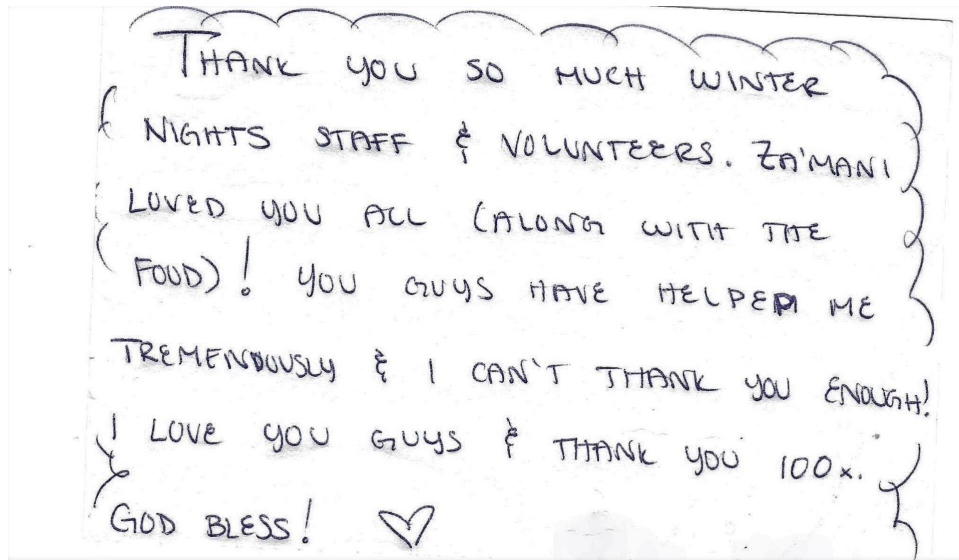 THANK YOU SO MUCH WINTER
NIGHTS STAFF & VOLUNTEERS. ZA'MANI
LOVED YOU ALL (ALONG WITH THE
FOOD)! YOU GUYS HAVE HELPED ME
TREMENDOUSLY & I CAN'T THANK YOU ENOUGH!
I LOVE YOU GUYS & THANK YOU 100x.
GOD BLESS! ♡